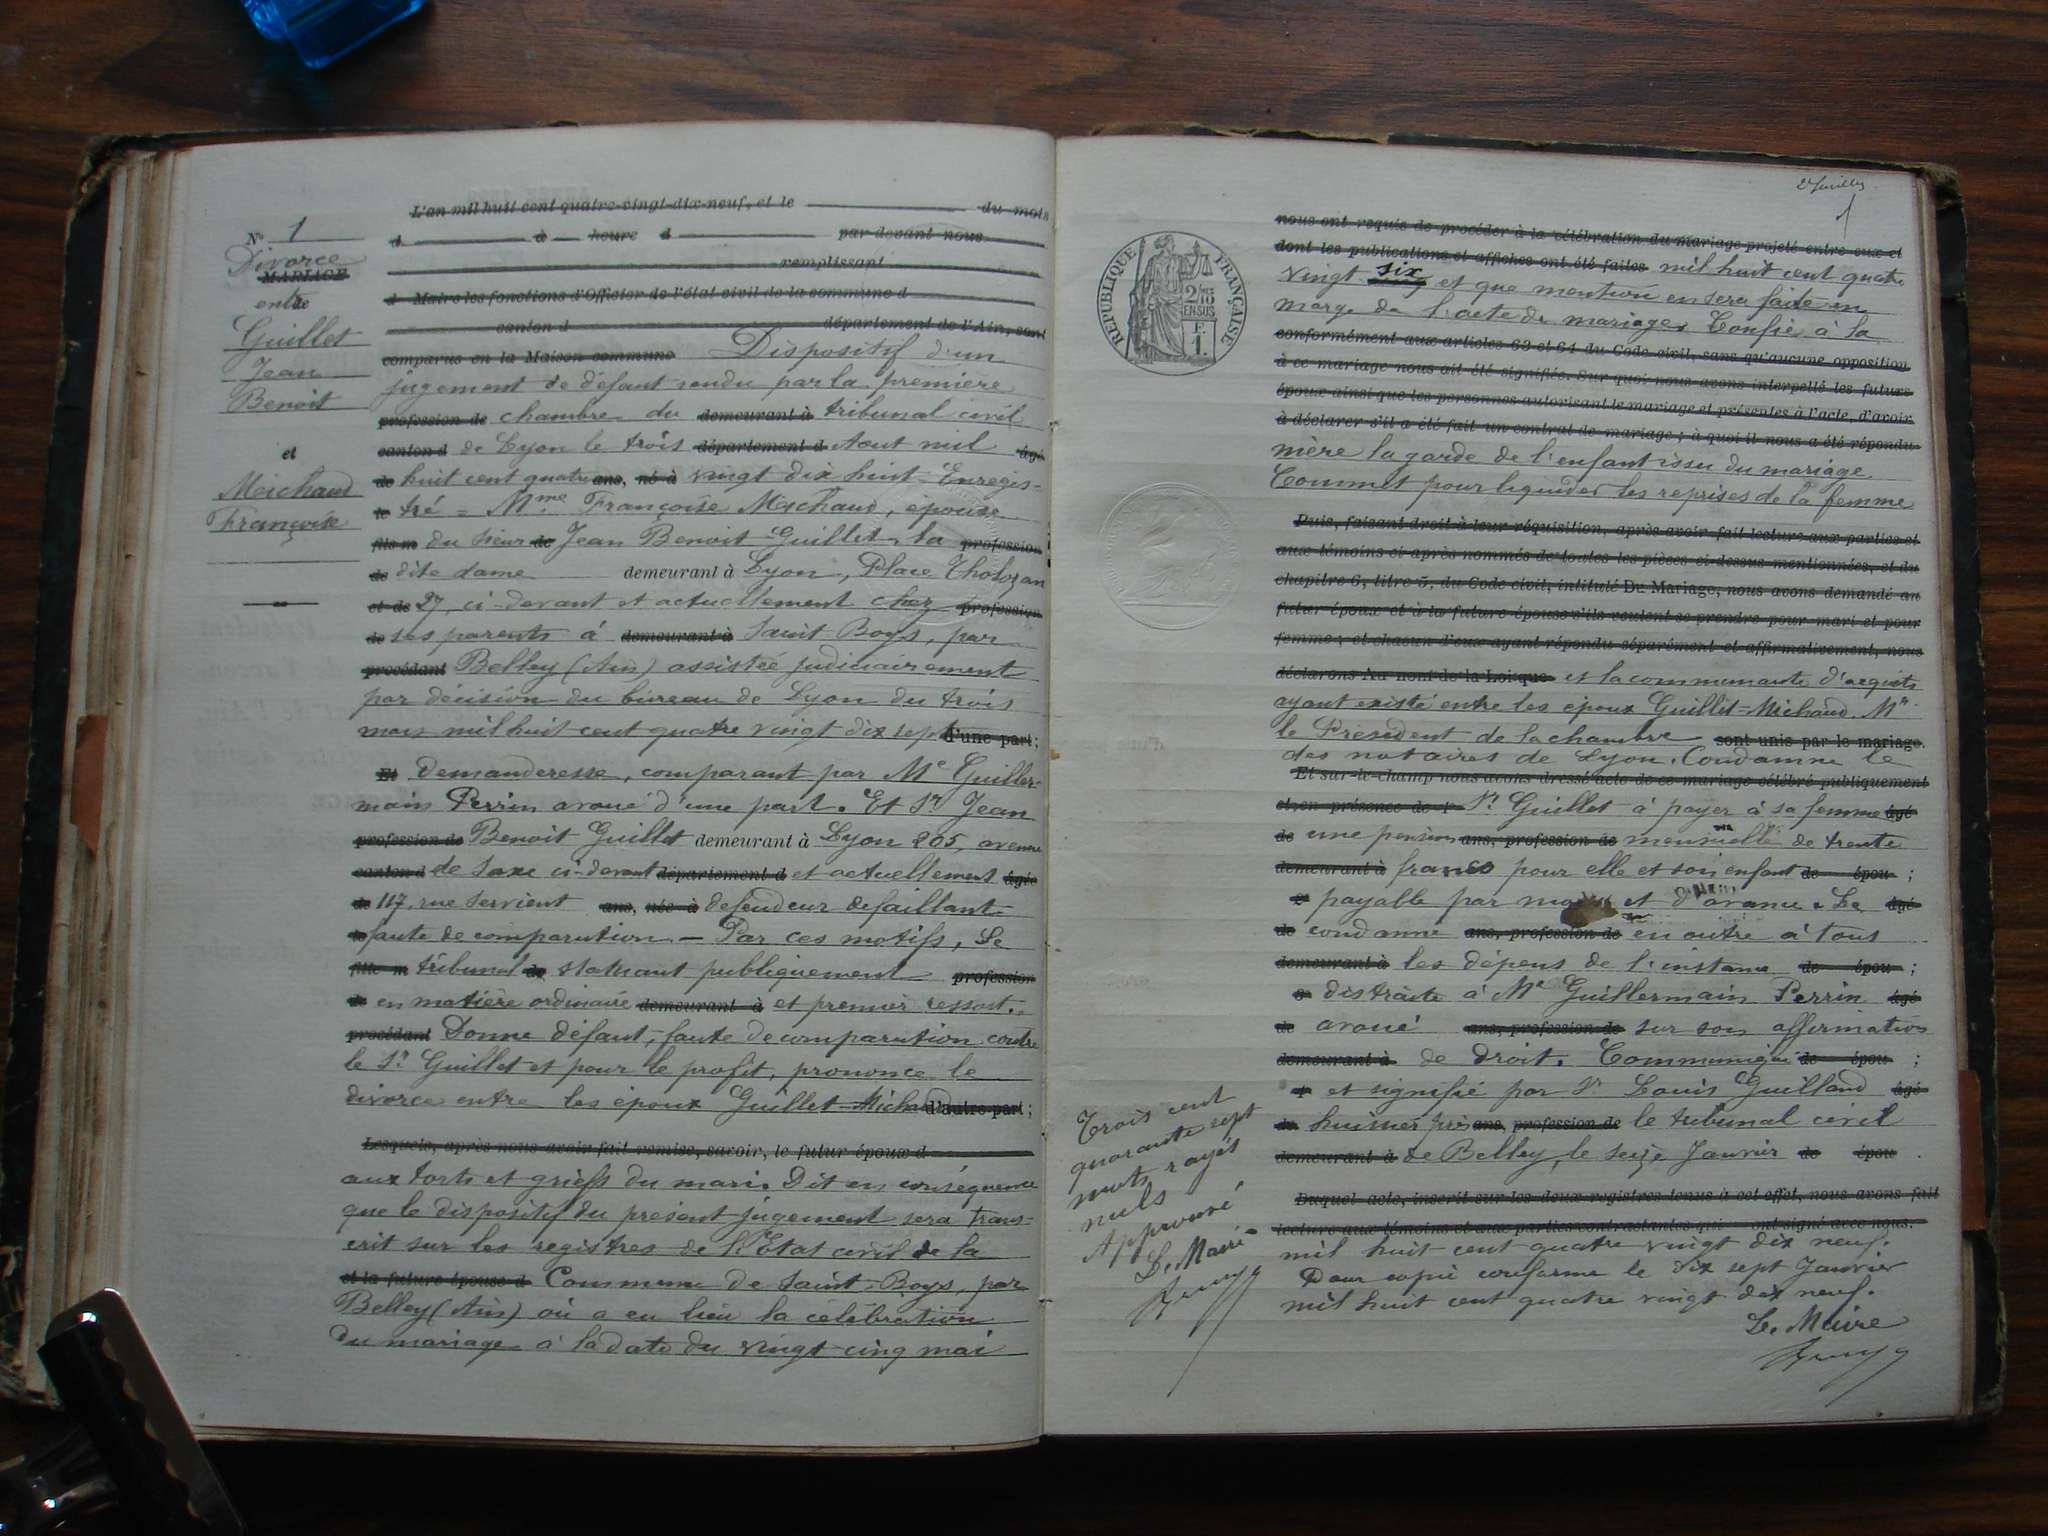 L'an mil huit cent quatre-vingt-dix-neuf, et le du mois
d à heure d par devant nous
remplissant
d Maire les fonctions d'Officier de l'état civil de la commune d
canton d département de l'Ain, sont
comparus en la Maison commune Dispositif d'un
jugement de défaut rendu par la première
profession de chambre du demeurant à tribunal civil
canton d de Lyon le trois département d Aout mil âgé
de huit cent quatre ans, né à vingt dix huit Enregis-
le tré = Mme Françoise Michaud, épouse
fils m du sieur de Jean Benoit Guillet, la profession
de dite dame demeurant à Lyon, Place Tholozan
et de 27, ci-devant et actuellement chez profession
de ses parents à demeurant à Saint-Boys, par
procédant Belley (Ain) assistée judiciairement
par décision du bureau de Lyon du trois
mars mil huit cent quatre vingt dix sept d'une part;
Et demanderesse, comparant par Me Guiller-
main Perrin avoué d'une part. Et Sr Jean
profession de Benoit Guillet demeurant à Lyon 205, avenue
canton d de Saxe ci-devant département d et actuellement âgée
de 117, rue Servient ans, née à defendeur defaillant
le faute de comparution - Par ces motifs, Le
fille m tribunal de statuant publiquement profession
de en matière ordinaire demeurant à et premier ressort.
procédant Donne défaut, faute de comparution contre
le Sr Guillet et pour le profit, prononce le
divorce entre les époux Guillet-Michaud d'autre part;
Lesquels, après nous avoir fait remise, savoir, le futur époux d
aux torts et griefs du mari. Dit en conséquence
que le dispositif du présent jugement sera trans-
crit sur les registres de l'Etat civil de la
et la future épouse d Commune de Saint-Boys, par
Belley (Ain) où a eu lieu la célébration
du mariage à la date du vingt cinq mai
No 1
Divorce
MARIAGE
entre
Guillet
Jean
Benoit
et
Michaud
Françoise
1
nous ont requis de procéder à la célébration du mariage projeté entre eux et
dont les publications et affiches ont été faites mil huit cent quatre
six
vingt et que mention en sera faite en
marge de l'acte de mariage. Confie à la
conformément aux articles 63 et 64 du Code civil, sans qu'aucune opposition
à ce mariage nous ait été signifiée. Sur quoi nous avons interpellé les futurs
époux ainsi que les personnes autorisant le mariage et présentes à l'acte, d'avoir
à déclarer s'il a été fait un contrat de mariage; à quoi il nous a été répondu
mère la garde de l'enfant issu du mariage
Commet pour liquider les reprises de la femme
Puis, faisant droit à leur réquisition, après avoir fait lecture aux parties et
aux témoins ci-après nommés de toutes les pièces ci-dessus mentionnées, et du
chapitre 6, titre 5, du Code civil, intitulé Du Mariage, nous avons demandé au
futur époux et à la future épouse s'ils veulent se prendre pour mari et pour
femme; et chacun d'eux ayant répondu séparément et affirmativement, nous
déclarons Au nom de la Loi que et la communauté d'acquets
ayant existé entre les époux Guillet-Michaud. Mr
le Président de la chambre sont unis par le mariage.
des notaires de Lyon. Condamne le
Et sur-le-champ nous avons dressé acte de ce mariage célébré publiquement
et, en présence de 1o Sr Guillet à payer à sa femme âgé
de une pension ans, profession de mensuelle de trente
demeurant à francs pour elle et son enfant de épou ;
2o payable par mois et d'avance. Le âgé
de condamne ans, profession de en outre à tous
demeurant à les dépens de l'instance de épou ;
3o distraits à Me Guillermain Perrin âgé
de avoué ans, profession de sur son affirmation
demeurant à de droit. Communiqué de épou ;
4o et signifié par Sr Louis Guilland âgé
de huissier près ans, profession de le tribunal civil
demeurant à de Belley, le seize Janvier de épou .
Duquel acte, inscrit sur les deux registres tenus à cet effet, nous avons fait
lecture aux témoins et aux parties contractantes qui ont signé avec nous.
mil huit cent quatre vingt dix neuf.
Pour copie conforme le dix sept Janvier
mil huit cent quatre vingt dix neuf.
Le Maire
RÉPUBLIQUE FRANÇAISE
2/10
EN SUS
F.
1.
Trois cent
quarante sept
mots rayés
nuls
Approuvé
Le Maire